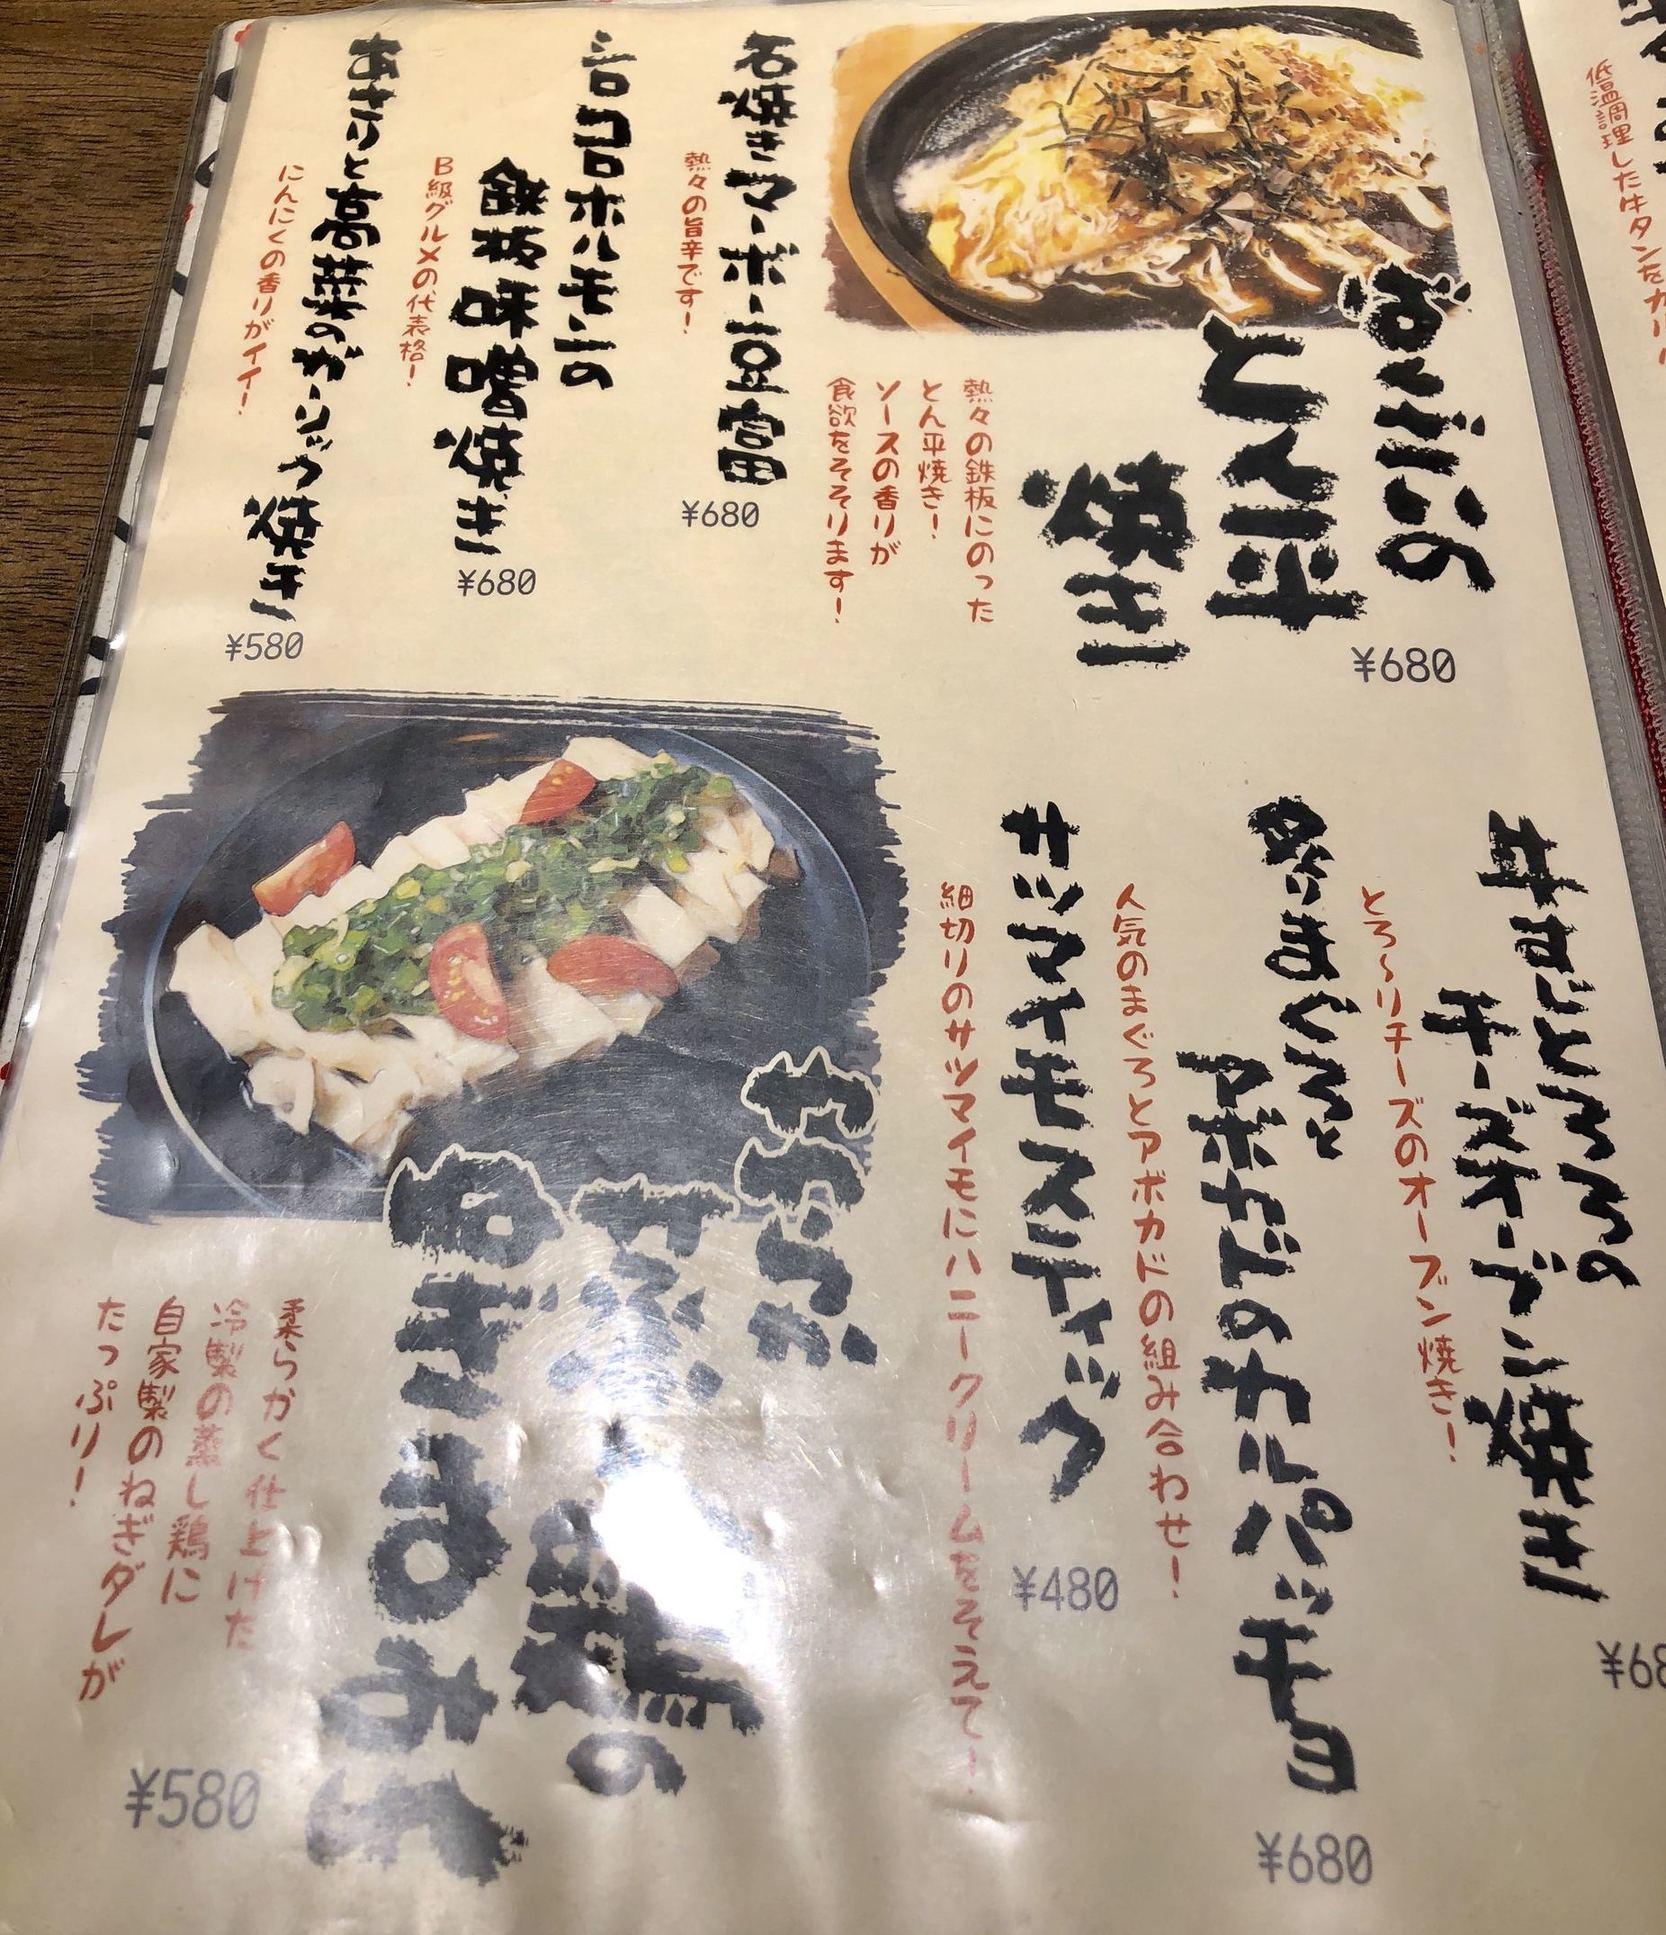 おいどんの
とん平
焼き
¥680
熱々の鉄板にのった
とん平焼き！
ソースの香りが
食欲をそそります！
石焼きマーボー豆富
熱々の旨辛です！
¥680
シロコロホルモンの
鉄板味噌焼き
B級グルメの代表格！
¥680
あさりと高菜のガーリック焼き
にんにくの香りがイイ！
¥580
牛すじととろろの
チーズオーブン焼き
とろ〜りチーズのオーブン焼き！
¥68
炙りまぐろと
アボカドのカルパッチョ
人気のまぐろとアボカドの組み合わせ！
¥680
サツマイモスティック
細切りのサツマイモにハニークリームをそえて！
¥480
柔らかく仕上げた
冷製の蒸し鶏に
自家製のねぎダレが
たっぷり！
¥580
低温調理した牛タンをカリ